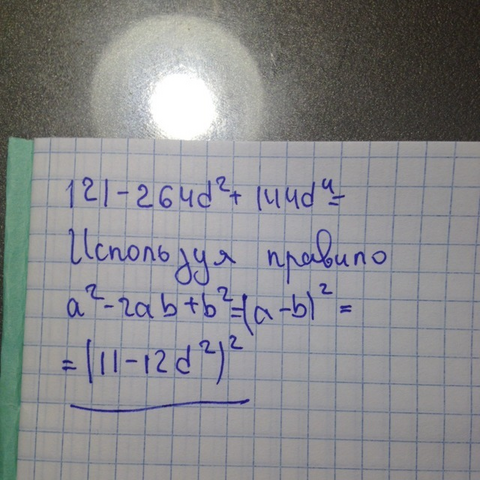 121-264d²+144d⁴=
Используя правило
a²-2ab+b²=(a-b)²=
=(11-12d²)²